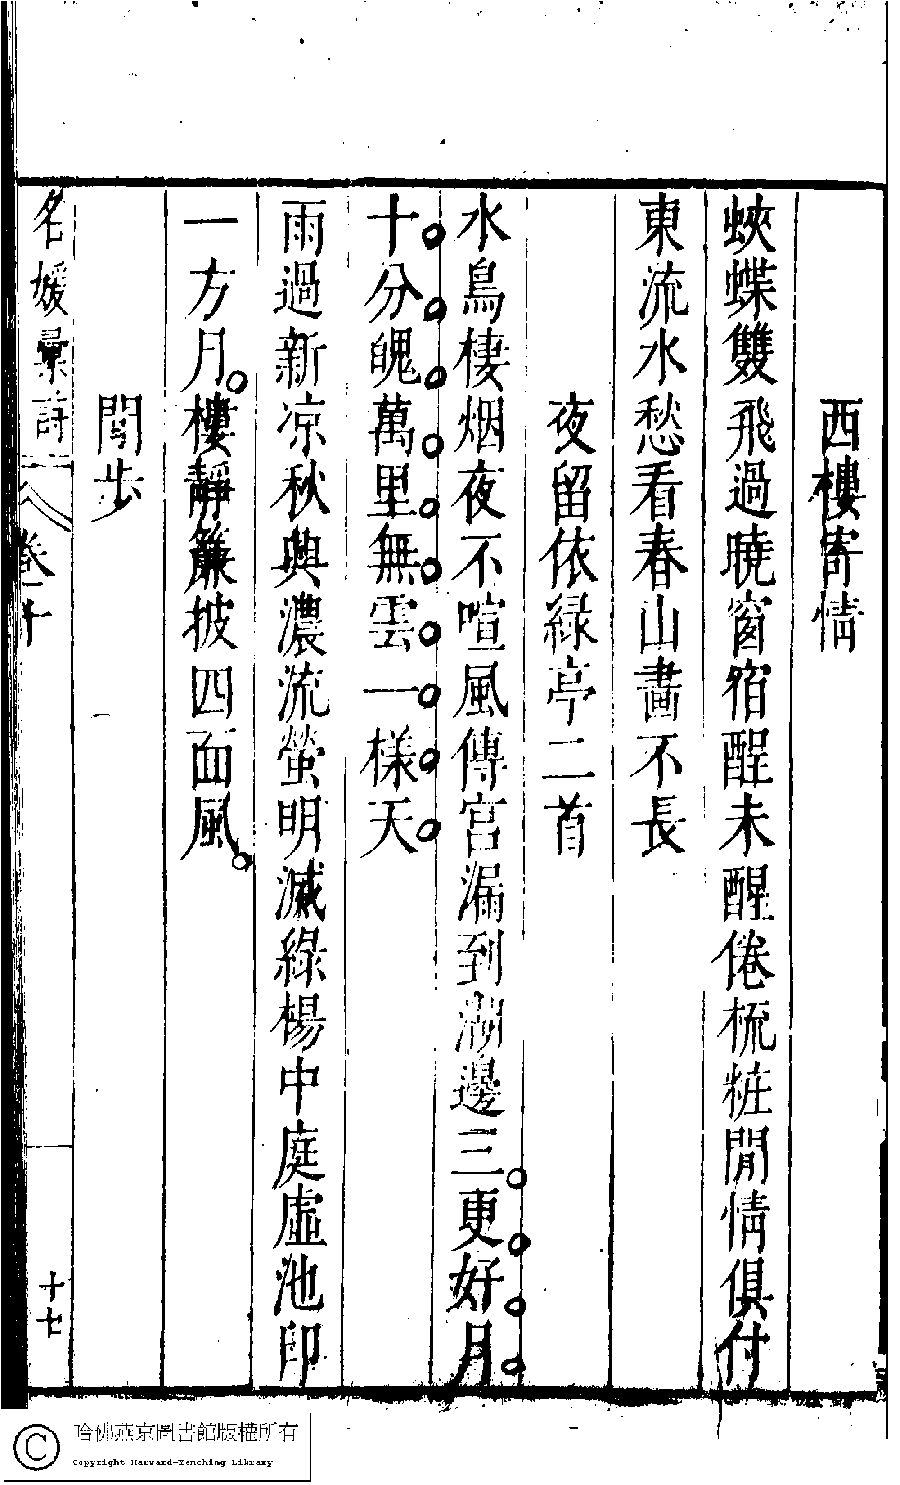 西樓寄情
蛺蝶雙飛過曉窗宿酲未醒倦梳粧閒情俱付
東流水愁看春山畫不長
夜留依綠亭二首
水鳥棲烟夜不喧風傳宮漏到湖邊三更好月
十分魄萬里無雲一樣天
雨過新凉秋興濃流螢明滅綠楊中庭虛池印
一方月樓靜簾披四面風
閒步
名媛彙詩
卷十
十七
哈佛燕京圖書館版權所有
Copyright Harvard-Yenching Library